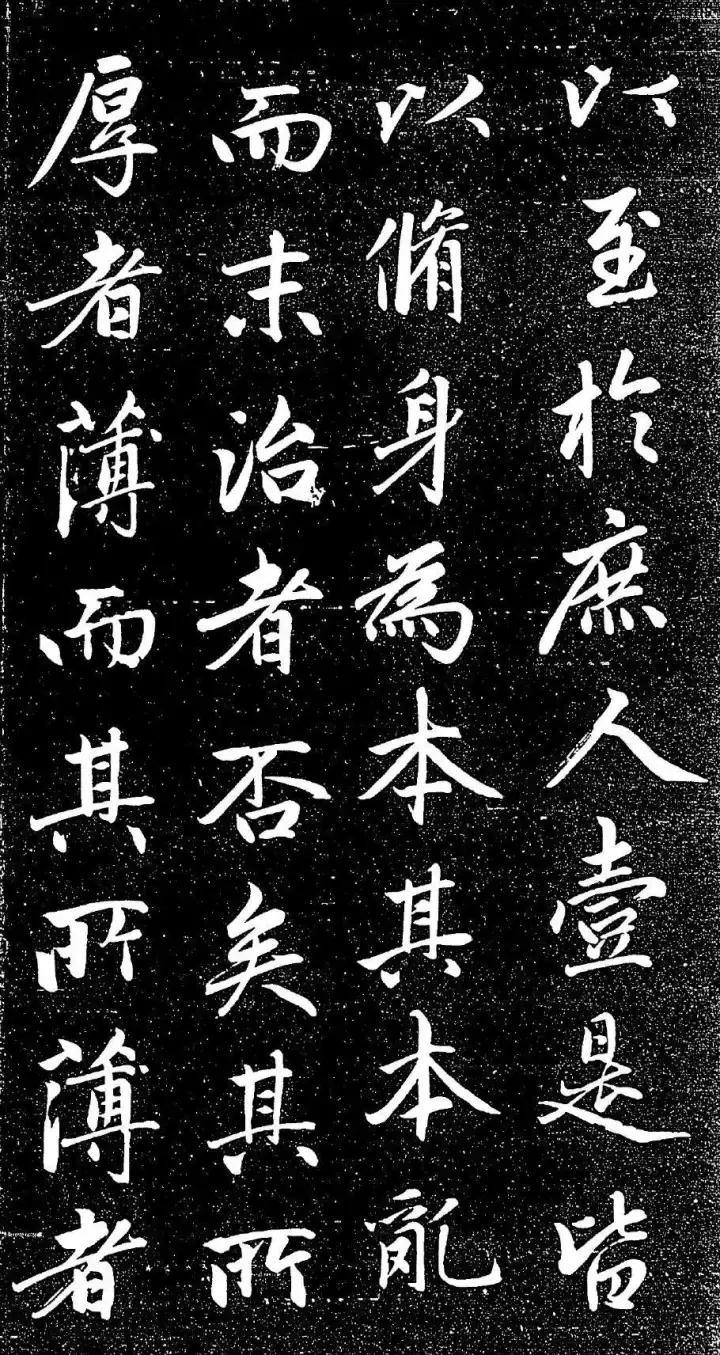 以至於庶人壹是皆
以脩身為本其本亂
而末治者否矣其所
厚者薄而其所薄者